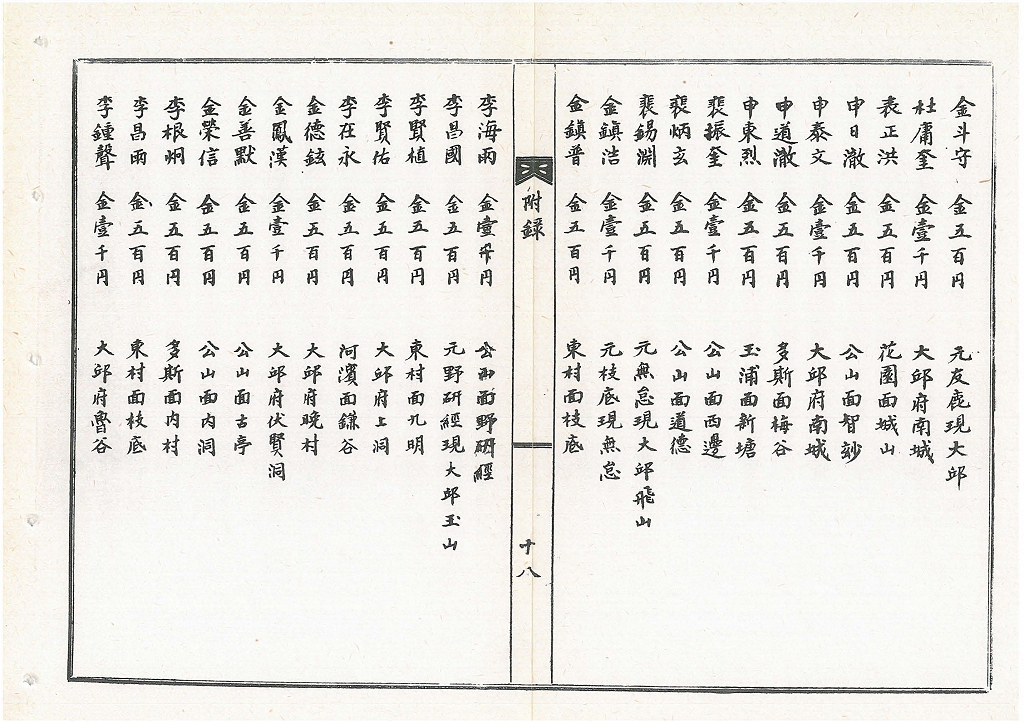 金斗守 金五百円 元友鹿現大邱
杜庸奎 金壹千円 大邱府南城
表正洪 金五百円 花園面城山
申日澈 金五百円 公山面智妙
申泰文 金壹千円 大邱府南城
申道澈 金五百円 多斯面梅谷
申東烈 金五百円 玉浦面新塘
裴振奎 金壹千円 公山面西邊
裴炳玄 金五百円 公山面道德
裴錫淵 金五百円 元無怠現大邱飛山
金鎭浩 金壹千円 元枝底現無怠
金鎭普 金五百円 東村面枝底
附録
十八
李海雨 金壹千円 公山面野硏經
李昌國 金五百円 元野硏經現大邱玉山
李賢植 金五百円 東村面九明
李賢佑 金五百円 大邱府上洞
李在永 金五百円 河濱面鎌谷
金德鉉 金五百円 大邱府晩村
金鳳漢 金壹千円 大邱府伏賢洞
金善默 金五百円 公山面古亭
金榮信 金五百円 公山面內洞
李根炯 金五百円 多斯面內村
李昌雨 金五百円 東村面枝底
李鍾聲 金壹千円 大邱府魯谷